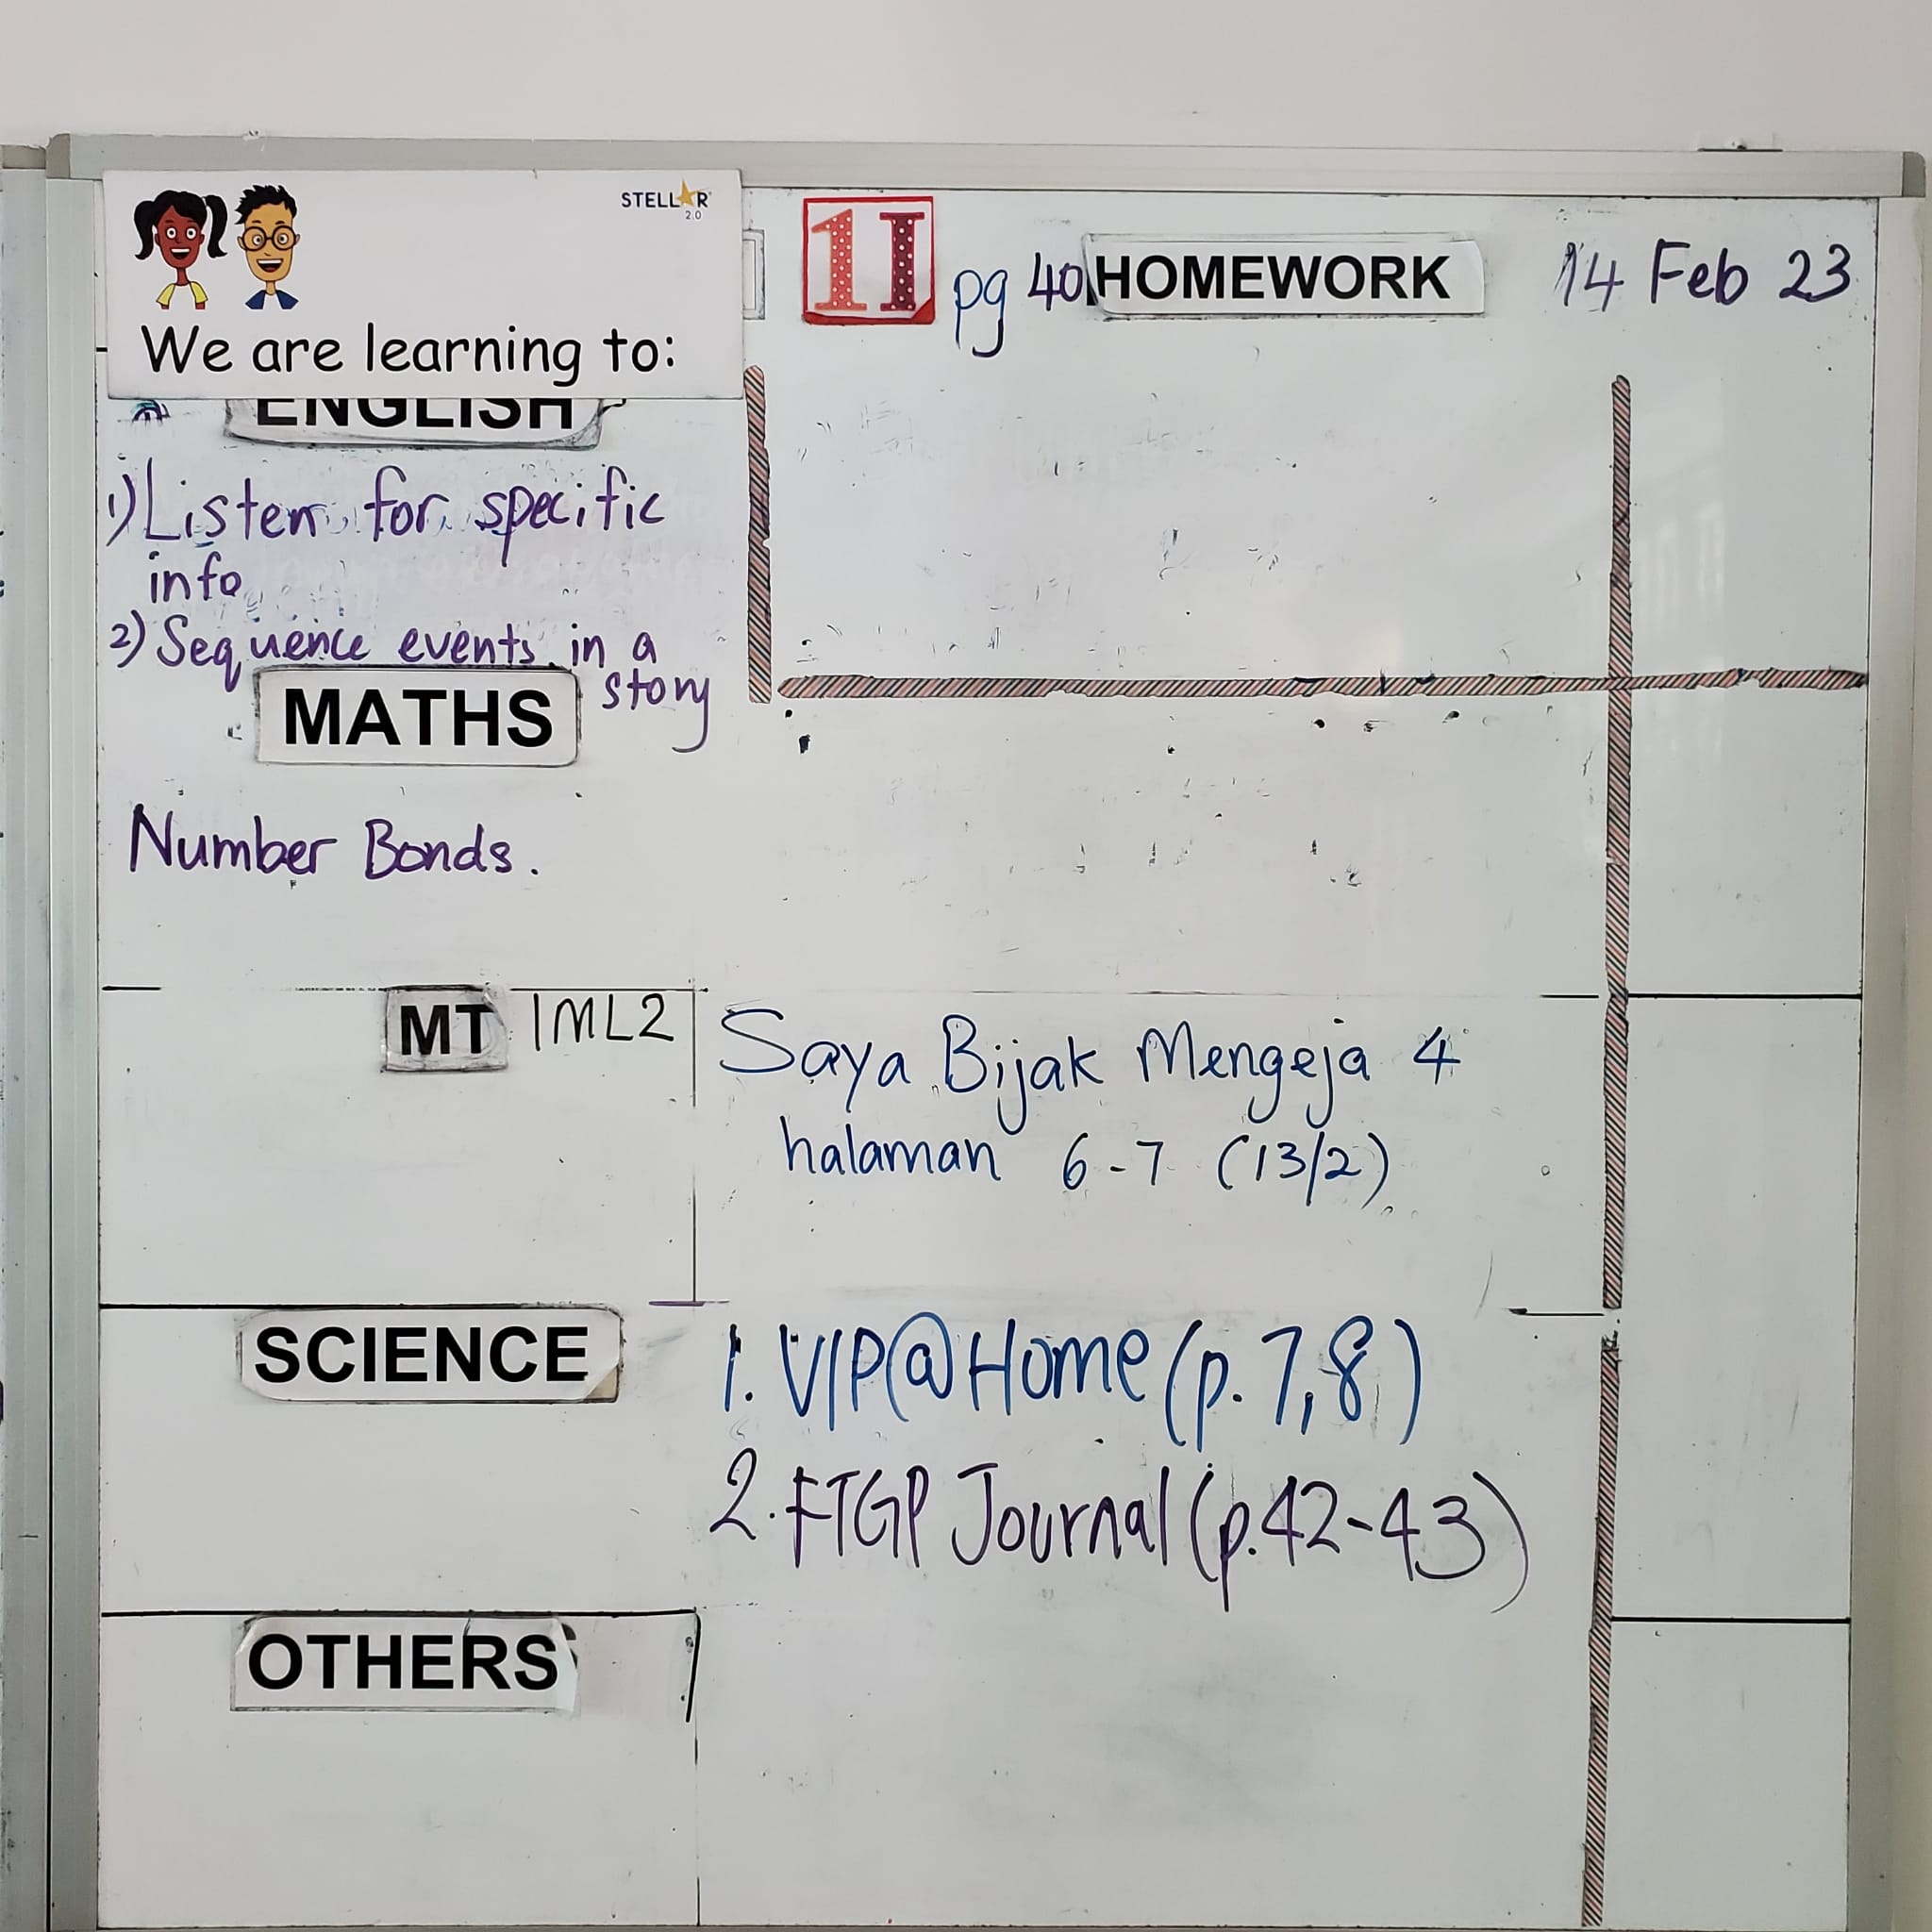 STELLAR
2.0
We are learning to:
1I pg 40 HOMEWORK 14 Feb 23
ENGLISH
1) Listen for specific
info
2) Sequence events in a
story
MATHS
Number Bonds.
MT 1ML2
Saya Bijak Mengeja 4
halaman 6-7 (13/2)
SCIENCE
1. VIP@Home (p. 7,8)
2. FTGP Journal (p.42-43)
OTHERS